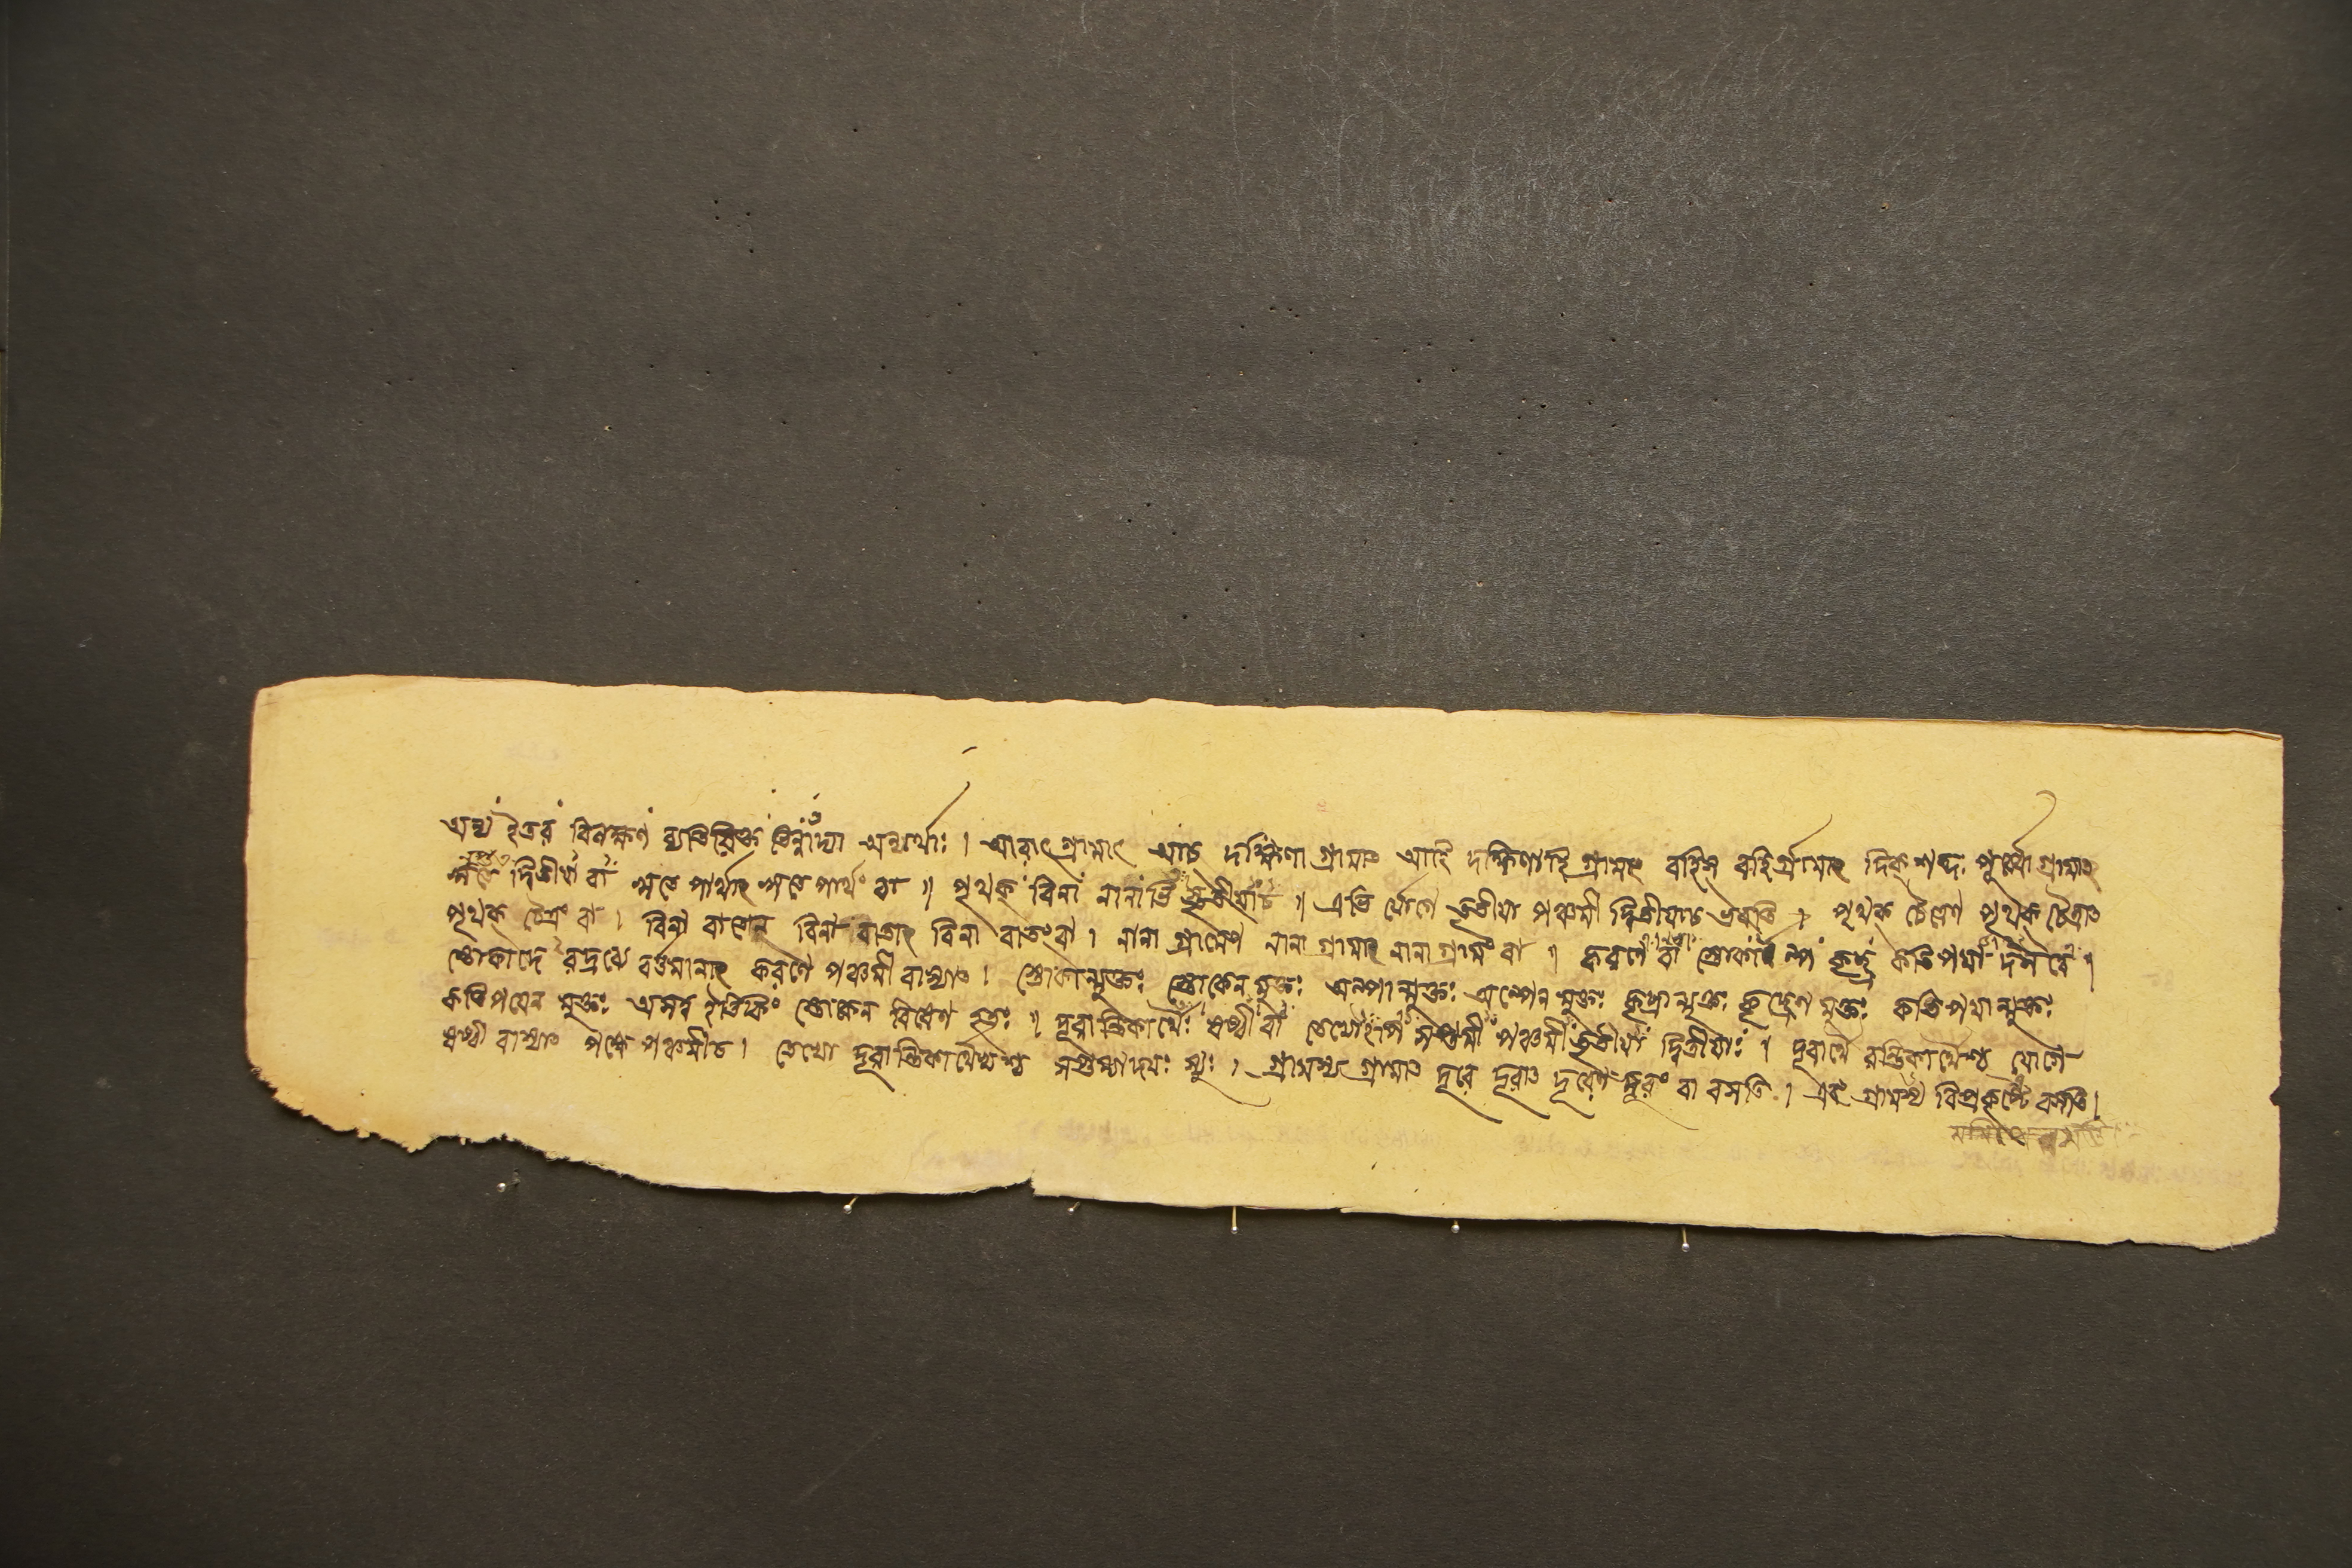 অন্য ইতর বিলক্ষণ ব্যতিরিক্ত ভিন্নাদ্যা অন্যার্থাঃ । আরাৎ গ্রামাৎ আচ্ দক্ষিণা গ্রামাৎ আহি দক্ষিণাহি গ্রামাৎ বহিস্ বহির্গ্রামাৎ দিক্ শব্দ পূর্ব্বো গ্রামাৎ
ঋতে দ্বিতীয়া বা ঋতে পার্থাৎ ঋতে পার্থং বা ॥ পৃথক্ বিনা নানাভি স্তৃতীয়া চ ॥ এভি র্যোগে তৃতীয়া পঞ্চমী দ্বিতীয়াচ ভবন্তি । পৃথক্ চৈত্রেণ পৃথক্ চৈত্রাৎ
পৃথক্ চৈত্রং বা । বিনা বাতেন বিনা বাতাৎ বিনা বাতং বা । নানা গ্রামেণ নানা গ্রামাৎ নানা গ্রামং বা ॥ করণে বা স্তোকাল্প কৃচ্ছ্র কতিপয়া দসত্বে ॥
স্তোকাদে রদ্রব্যে বর্ত্তমানাৎ করণে পঞ্চমী বাস্যাৎ । স্তোকান্মুক্তঃ স্তোকেন মুক্তঃ অল্পান্মুক্তঃ অল্পেন মুক্তঃ কৃচ্ছ্রান্মুক্তঃ কৃচ্ছ্রেণ মুক্তঃ কতিপয়ান্মুক্তঃ
কতিপয়েন মুক্তঃ অসত্ব ইতিকিং স্তোকেন বিষেণ হতঃ ॥ দূরান্তিকার্থৈঃ ষষ্ঠী বা তেভ্যো সপ্তমী পঞ্চমী তৃতীয়া দ্বিতীয়াঃ । দূরার্থৈ রন্তিকার্থৈশ্চ যোগে
ষষ্ঠী বাস্যাৎ পক্ষে পঞ্চমীচ । তেভ্যো দূরান্তিকার্থেভ্যশ্চ সপ্তম্যাদয়ঃ স্যুঃ । গ্রামস্য গ্রামাৎ দূরে দূরাৎ দূরেণ দূরং বা বসতি । এবং গ্রামস্য বিপ্রকৃষ্টে বসতি ।